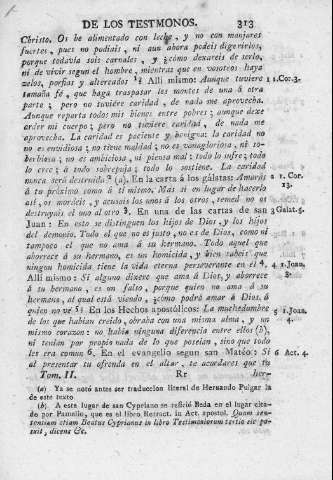 DE LOS TESTMONOS. 313
Christo. Os he alimentado con leche, y no con manjares
fuertes, pues no podiais, ni aun ahora podeis digerirlos,
porque todavía sois carnales, y ¿cómo dexareis de serlo,
ni de vivir segun el hombre, mientras que en vosotros haya
zelos, porfias y altercados 1? Alli mismo: Aunque tuviere 1 1. Cor. 3.
tamaña fé, que haga traspasar los montes de una á otra
parte; pero no tuviere caridad, de nada me aprovecha.
Aunque reparta todos mis bienes entre pobres; aunque dexe
arder mi cuerpo; pero no tuviere caridad, de nada me
aprovecha. La caridad es paciente y benigna: la caridad no
no es envidiosa; no tiene maldad; no es vanagloriosa, ni so-
berbiosa; no es ambiciosa, ni piensa mal: todo lo sufre; todo
lo cree; á todo sobrepuja; todo lo sostiene. La caridad
nunca será destruida 2 (a). En la carta á los gálatas: Amarás 2 1. Cor.
á tu próximo como á tí mismo. Mas si en lugar de hacerlo 13.
así, os mordeis, y acusais los unos á los otros, temed no os
destruyais el uno al otro 3. En una de las cartas de san 3 Galat. 5.
Juan: En esto se distinguen los hijos de Dios, y los hijos
del demonio. Todo el que no es justo, no es de Dios, como ni
tampoco el que no ama á su hermano. Todo aquel que
aborrece á su hermano, es un homicida, y bien sabeis que
ningun homicida tiene la vida eterna perseverante en él 4. 4 1. Joan.
Alli mismo: Si alguno dixere que ama á Dios, y aborrece 3.
á su hermano, es un falso, porque quien no ama á su
hermano, al qual está viendo, ¿cómo podrá amar á Dios, á
quien no vé 5? En los Hechos apostólicos: La muchedumbre 5 1. Joan.
de los que habian creido, obraba con una misma alma, y un 4.
mismo corazon: no habia ninguna diferencia entre ellos (b),
ni tenian por propio nada de lo que poseían, sino que todo
les era comun 6. En el evangelio segun san Matéo: Si 6 Act. 4.
al presentar tu ofrenda en el altar, te acordares que tu
Tom. II. Rr her-
(a) Ya se notó antes ser traduccion literal de Hernando Pulgar la
de este texto
(b) A este lugar de san Cypriano se refirió Beda en el lugar cita-
do por Pamelio, que es el libro Retract. in Act. apostol. Quam sen-
tentiam etiam Beatus Cyprianus in libro Testimoniorum tertio sic po-
suit, dicens &c.